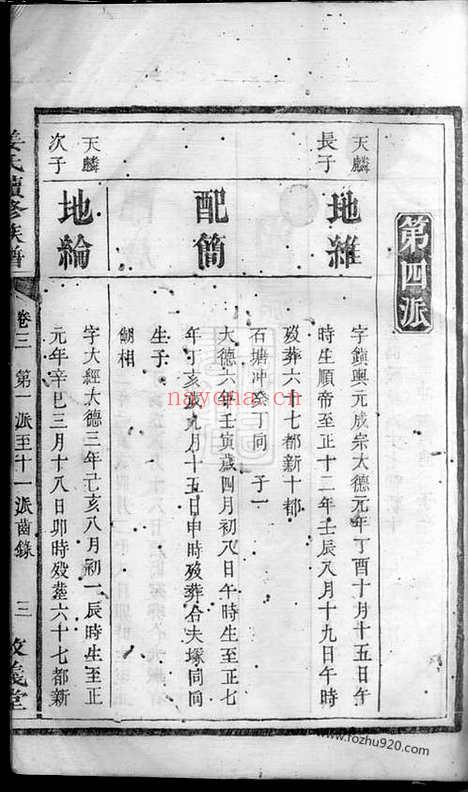 第四派
天麟
長子
地維
字鎮輿元成宗大德元年丁酉十月十五日午
時生順帝至正十二年壬辰八月十九日午時
歿葬六十七都新十都
石塘冲癸丁向 子一
配簡
大德六年壬寅歲四月初八日午時生至正七
年丁亥歲九月十五日申時歿葬合夫塚同向
生子
朝相
天麟
次子
地綸
字大經大德三年己亥八月初一辰時生至正
元年辛巳三月十八日卯時歿葬六十七都新
姜氏續修族譜
卷三 第一派至十一派齒錄
三
敦義堂
nayona.cn
www.fozhu920.com